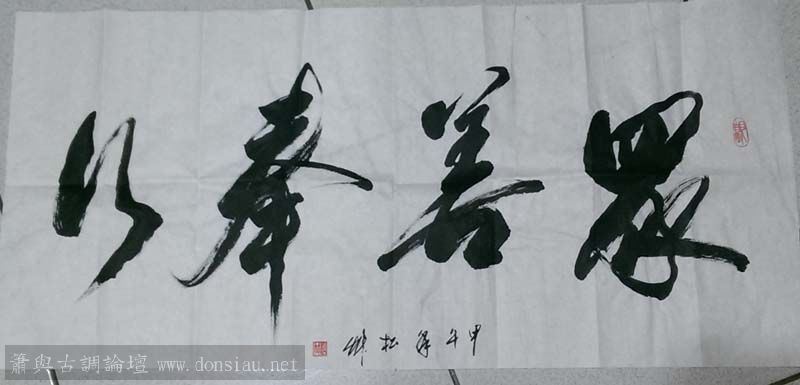 眾善奉行
甲午年 松
簫與古調論壇 www.donsiau.net